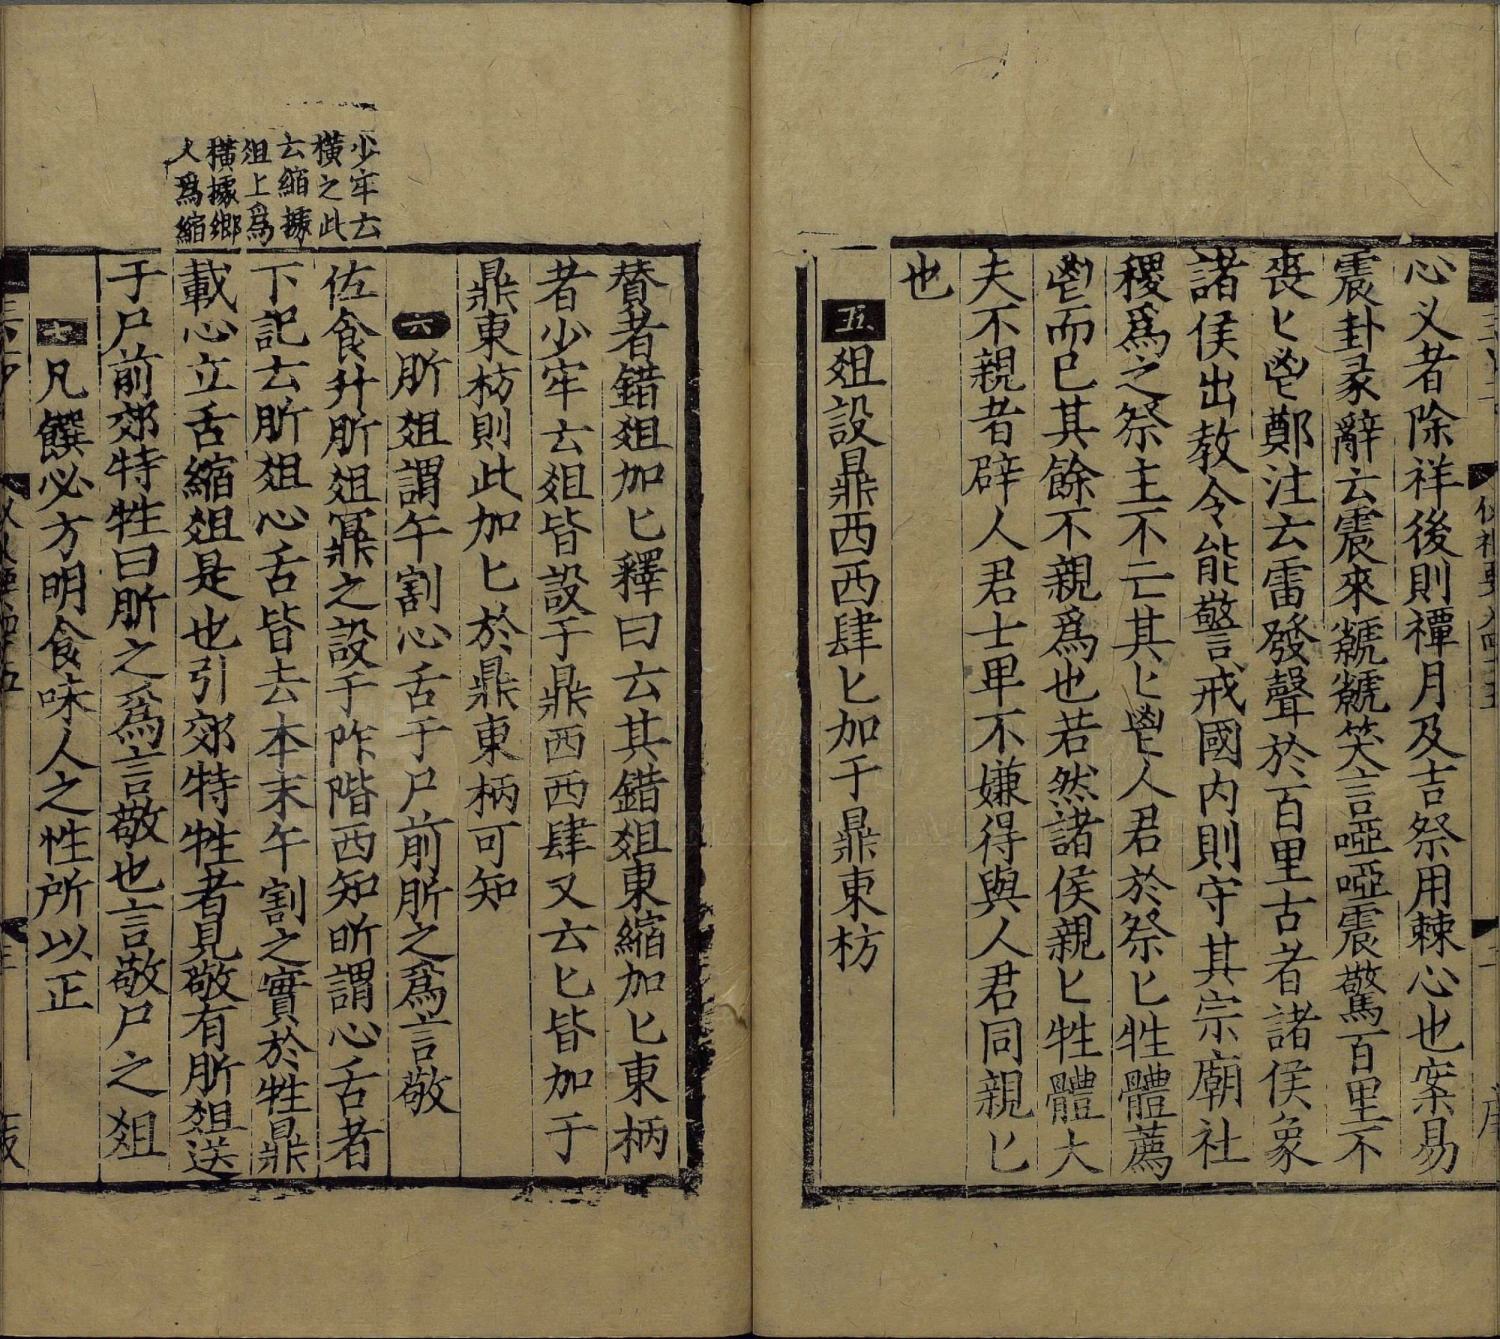 心义者除祥後則禫月及吉祭用棘心也案易
震卦彖辭云震來虩虩笑言啞啞震驚百里不
喪匕鬯鄭注云雷發聲於百里古者諸侯象
諸侯出教令能警戒國内則守其宗廟社
稷爲之祭主不亡其匕鬯人君於祭匕牲體薦
鬯而已其餘不親爲也若然諸侯親匕牲體大
夫不親者辟人君士卑不嫌得與人君同親匕
也
五 俎設鼎西西肆匕加于鼎東枋
賛者錯俎加匕釋曰云其錯俎東縮加匕東柄
者少牢云俎皆設于鼎西西肆又云匕皆加于
鼎東枋則此加匕於鼎東柄可知
六 肵俎謂午割心舌于尸前肵之爲言敬
佐食升肵俎鼏之設于阼階西知肵謂心舌者
下記云肵俎心舌皆去本末午割之實於牲鼎
載心立舌縮俎是也引郊特牲者見敬有肵俎送
于尸前郊特牲曰肵之爲言敬也言敬尸之俎
七 凡饌必方明食味人之性所以正
少牢云
橫之此
云縮據
俎上爲
橫據鄉
人爲縮